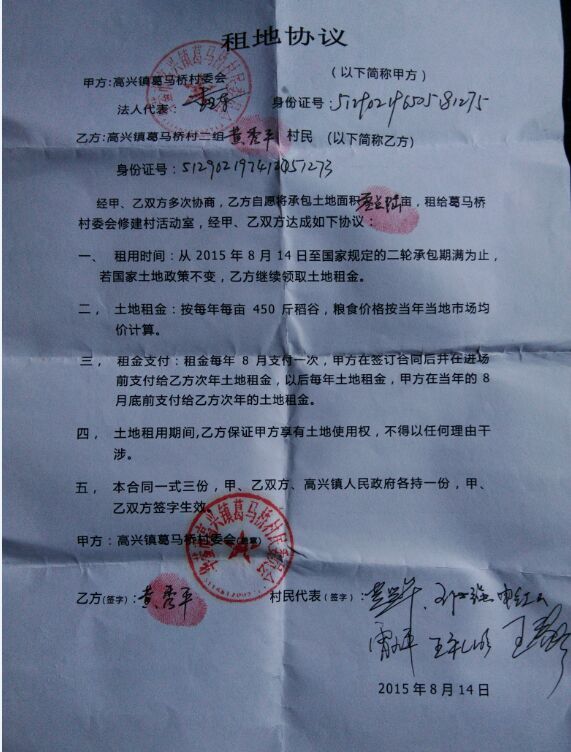 租地协议
甲方：高兴镇葛马桥村委会 （以下简称甲方）
法人代表： 身份证号：512902196505181275
乙方：高兴镇葛马桥村二组 黄秀平 村民 （以下简称乙方）
身份证号：
经甲、乙双方多次协商，乙方自愿将承包土地面积 亩，租给葛马桥
村委会修建村活动室，经甲、乙双方达成如下协议：
一、 租用时间：从 2015 年 8 月 14 日至国家规定的二轮承包期满为止，
若国家土地政策不变，乙方继续领取土地租金。
二， 土地租金：按每年每亩 450 斤稻谷，粮食价格按当年当地市场均
价计算。
三， 租金支付：租金每年 8 月支付一次，甲方在签订合同后并在进场
前支付给乙方次年土地租金，以后每年土地租金，甲方在当年的 8
月底前支付给乙方次年的土地租金。
四， 土地租用期间,乙方保证甲方享有土地使用权，不得以任何理由干
涉。
五， 本合同一式三份，甲、乙双方、高兴镇人民政府各持一份，甲、
乙双方签字生效。
甲方：高兴镇葛马桥村委会(盖章)
乙方(签字)：黄秀平 村民代表（签字）：
2015 年 8 月 14 日